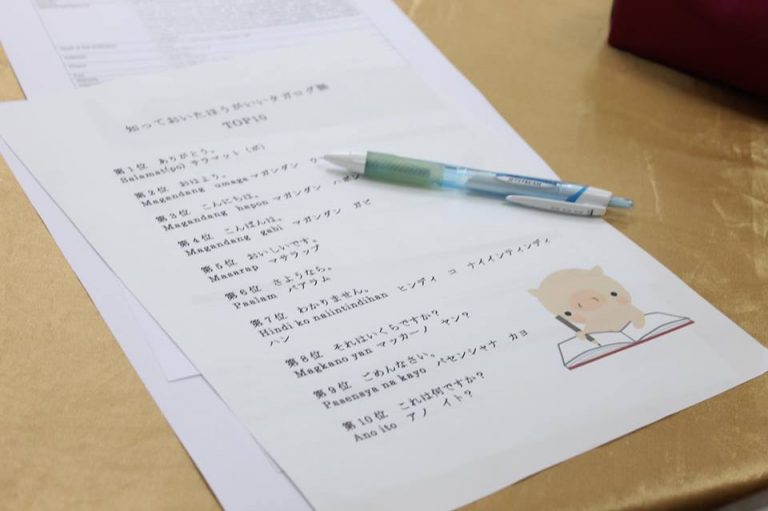 知っておいたほうがいいタガログ語
TOP10
第1位 ありがとう。
Salamat(po) サラマット (ポ)
第2位 おはよう。
Magandang umaga マガンダン ウ
第3位 こんにちは。
Magandang hapon マガンダン ハポン
第4位 こんばんは。
Magandang gabi マガンダン ガビ
第5位 おいしいです。
Masarap マサラップ
第6位 さようなら。
Paalam パアラム
第7位 わかりません。
Hindi ko naiintindihan ヒンディ コ ナイインティンディ
ハン
第8位 それはいくらですか?
Magkano yan マッカーノ ヤン?
第9位 ごめんなさい。
Pasensya na kayo パセンシャナ カヨ
第10位 これは何ですか?
Ano ito アノ イト?
JETSTREAM